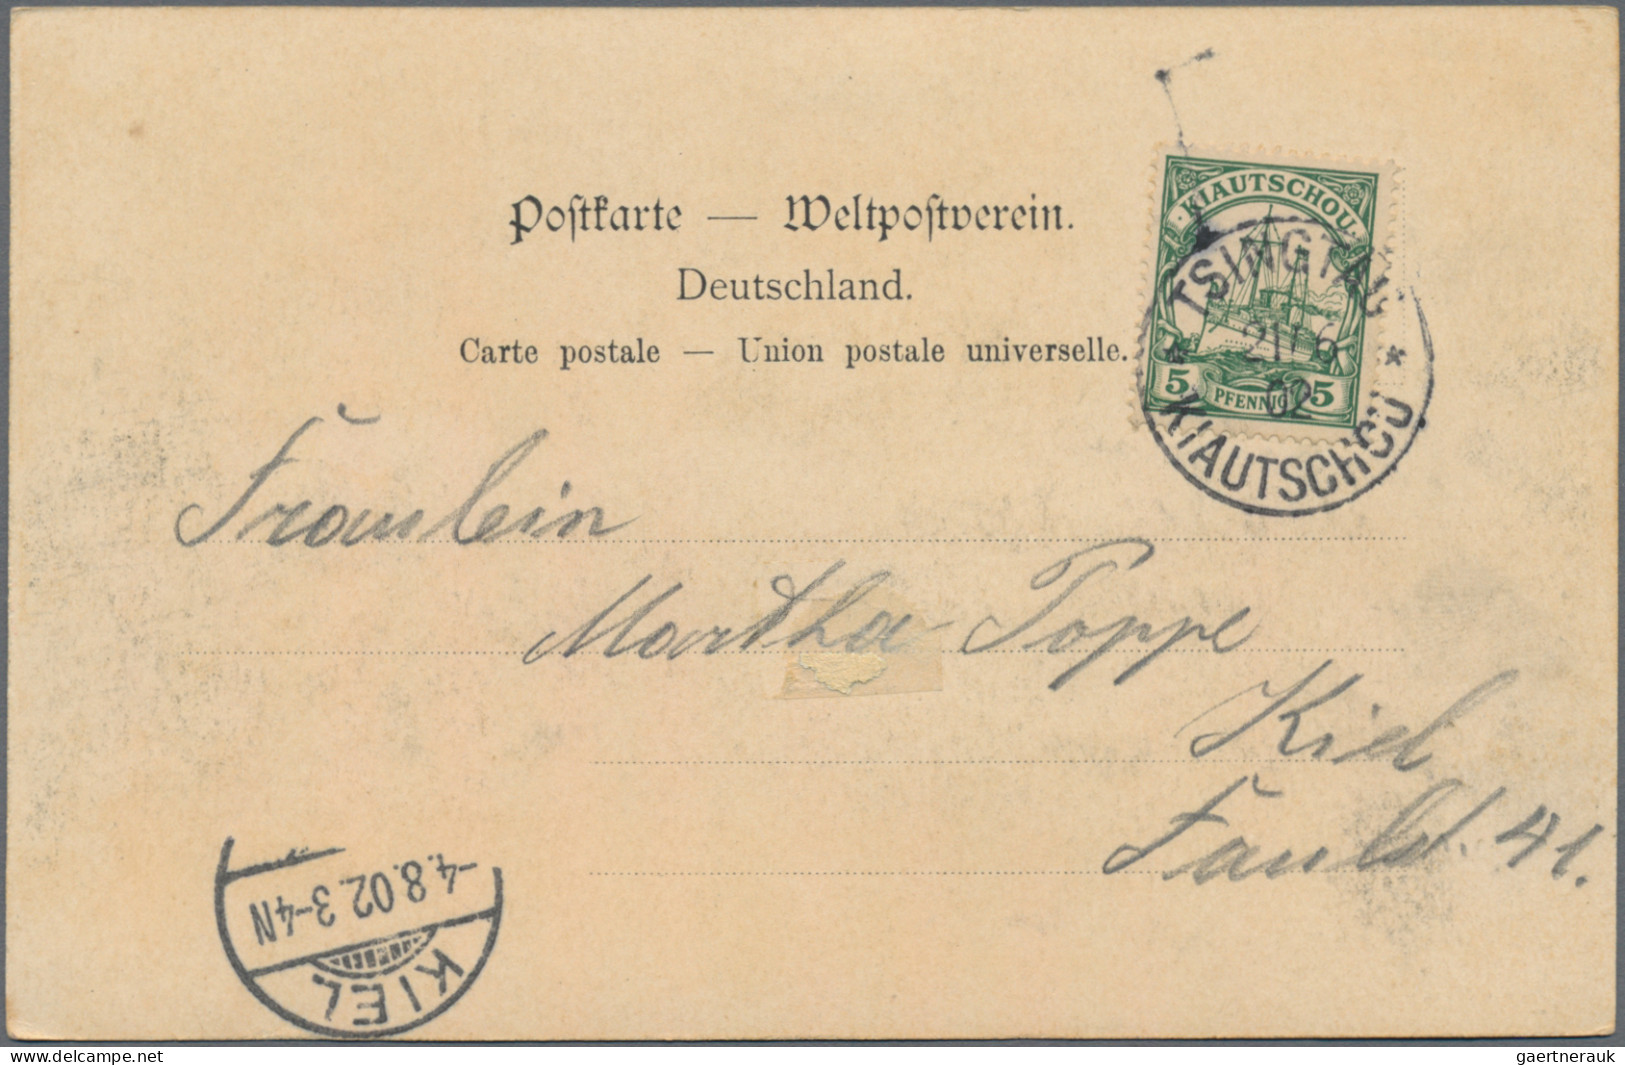 Postkarte — Weltpostverein.
Deutschland.
Carte postale — Union postale universelle.
KIAUTSCHOU
5 PFENNIG 5
TSINGTAU
21/6
02
* KIAUTSCHOU *
Fraulein
Martha Poppe
Kiel
41.
-4.8.02.3-4N
KIEL
www.delcampe.net
gaertnerauk